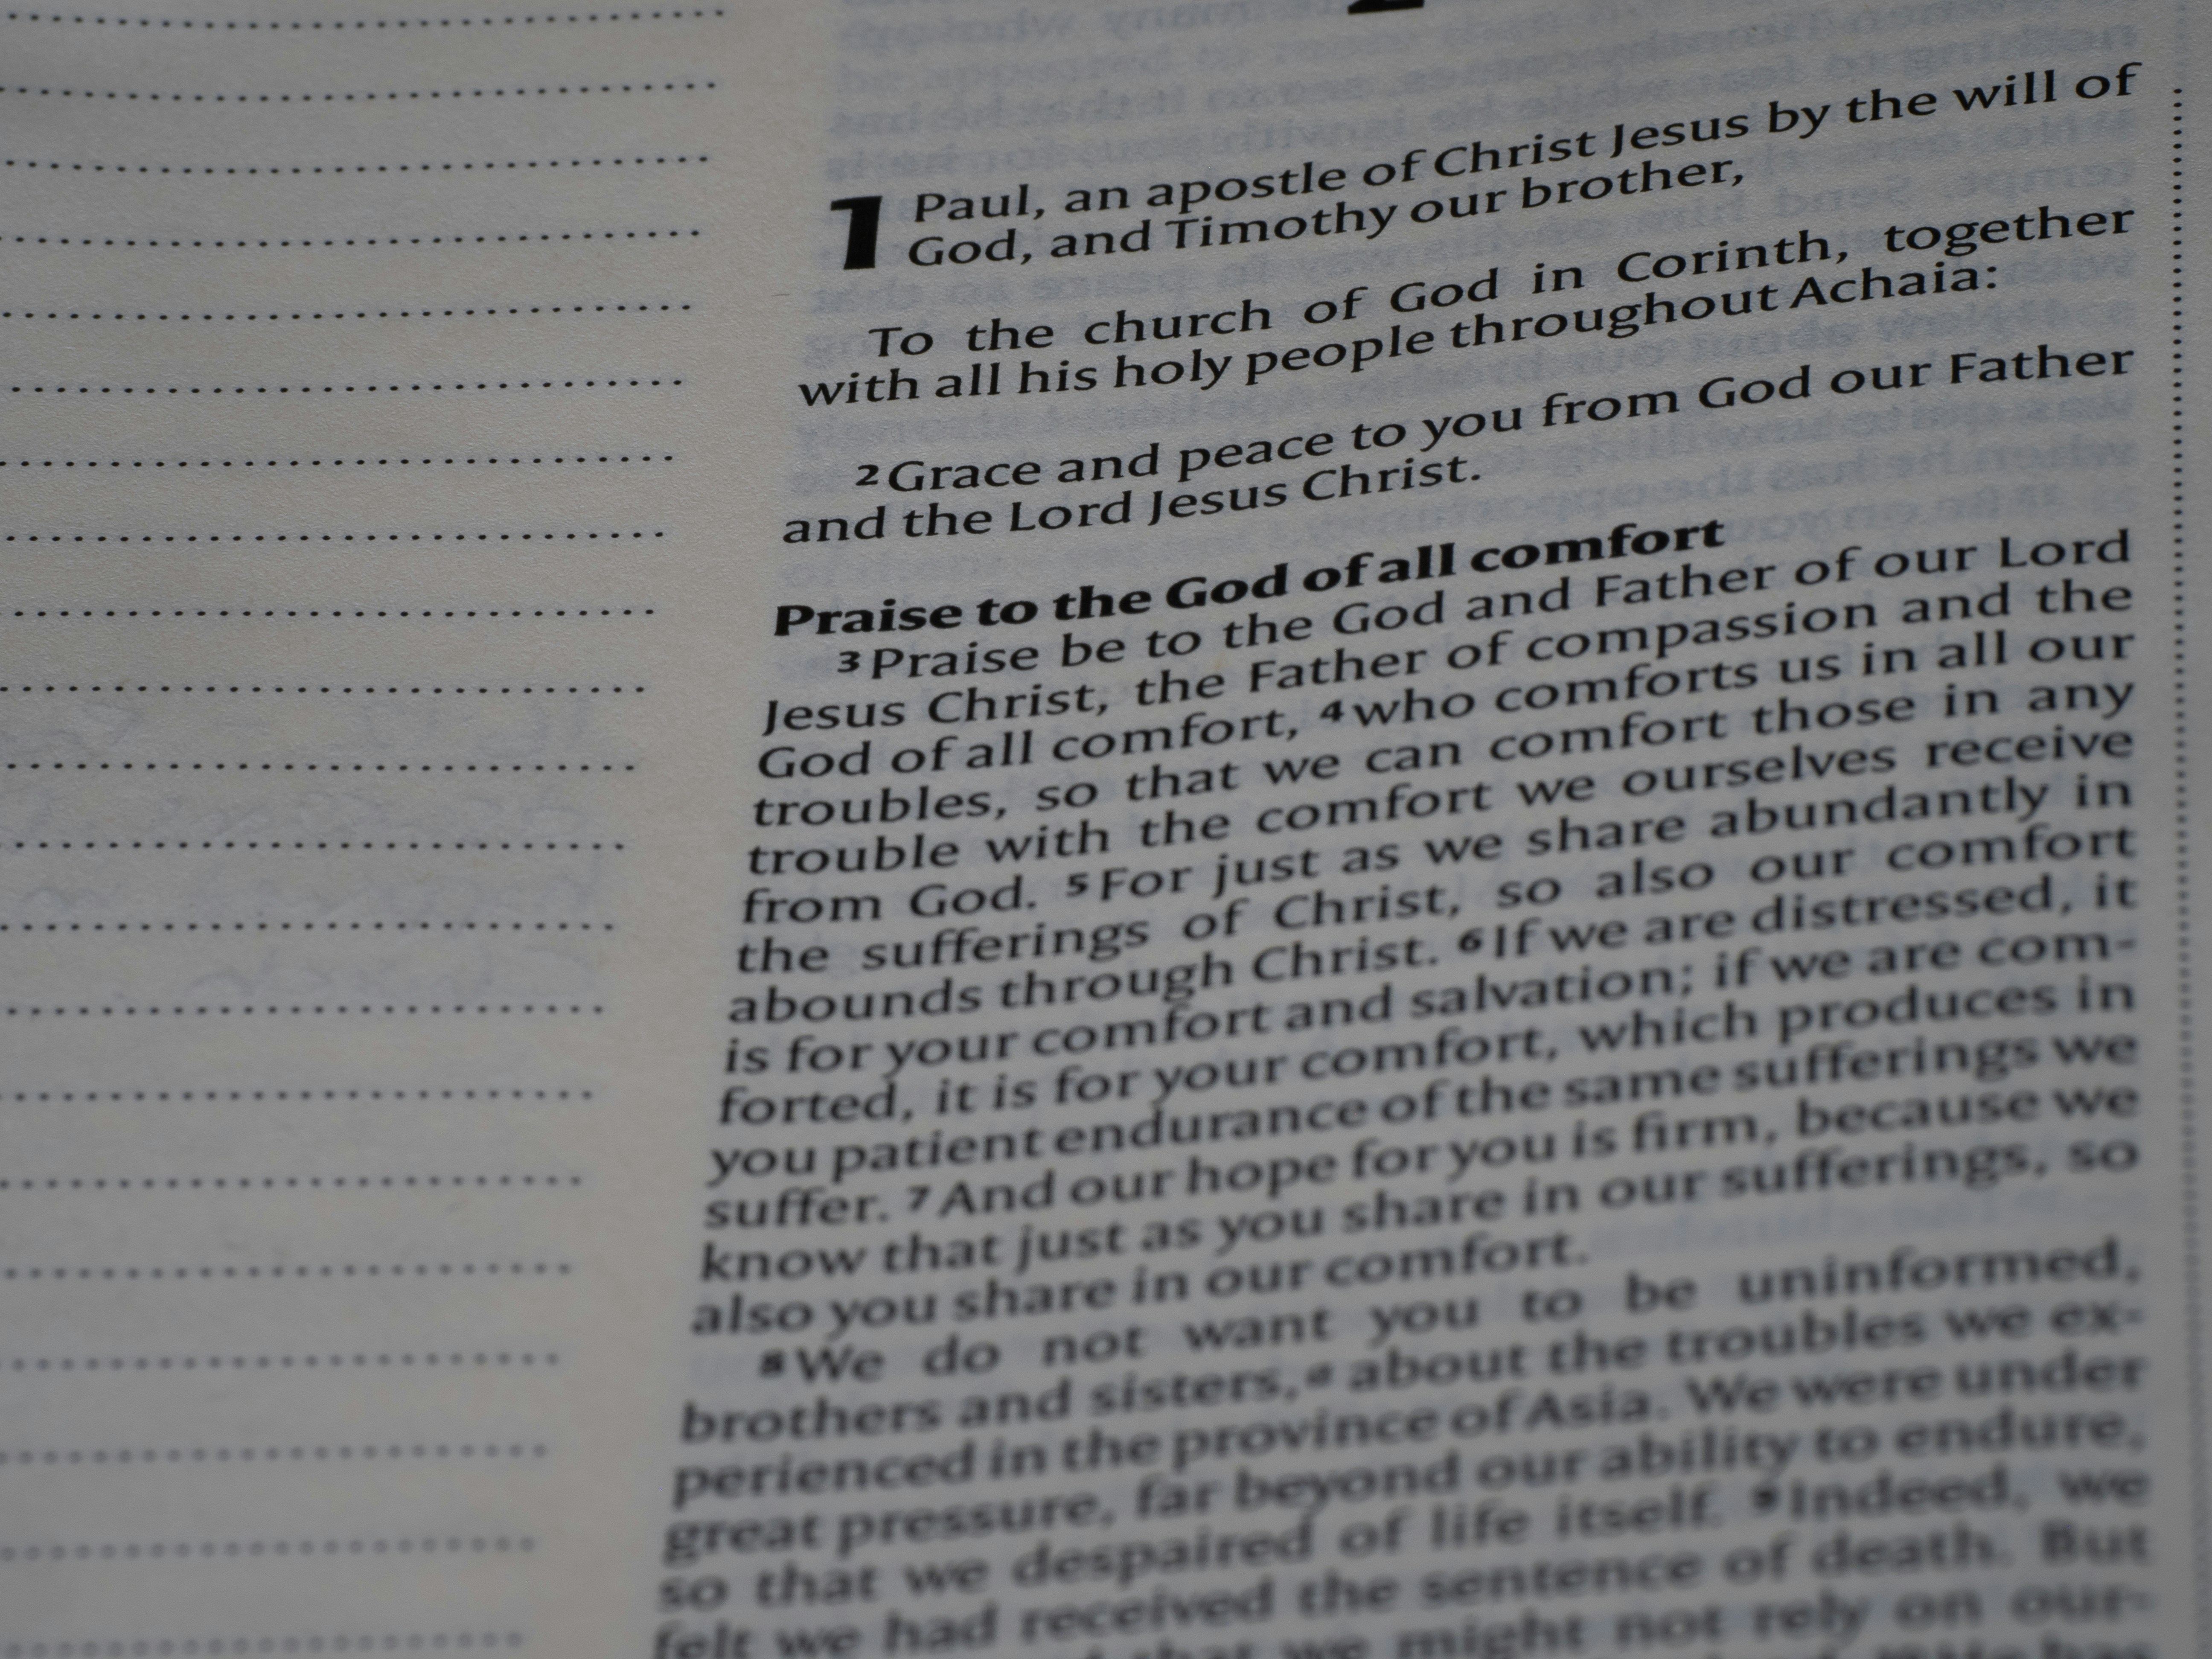 1 Paul, an apostle of Christ Jesus by the will of
God, and Timothy our brother,
To the church of God in Corinth, together
with all his holy people throughout Achaia:
2 Grace and peace to you from God our Father
and the Lord Jesus Christ.
Praise to the God of all comfort
3 Praise be to the God and Father of our Lord
Jesus Christ, the Father of compassion and the
God of all comfort, 4 who comforts us in all our
troubles, so that we can comfort those in any
trouble with the comfort we ourselves receive
from God. 5 For just as we share abundantly in
the sufferings of Christ, so also our comfort
abounds through Christ. 6 If we are distressed, it
is for your comfort and salvation; if we are com-
forted, it is for your comfort, which produces in
you patient endurance of the same sufferings we
suffer. 7 And our hope for you is firm, because we
know that just as you share in our sufferings, so
also you share in our comfort.
8 We do not want you to be uninformed,
brothers and sisters,a about the troubles we ex-
perienced in the province of Asia. We were under
great pressure, far beyond our ability to endure,
so that we despaired of life itself. 9 Indeed, we
felt we had received the sentence of death. But
that we might not rely on our-